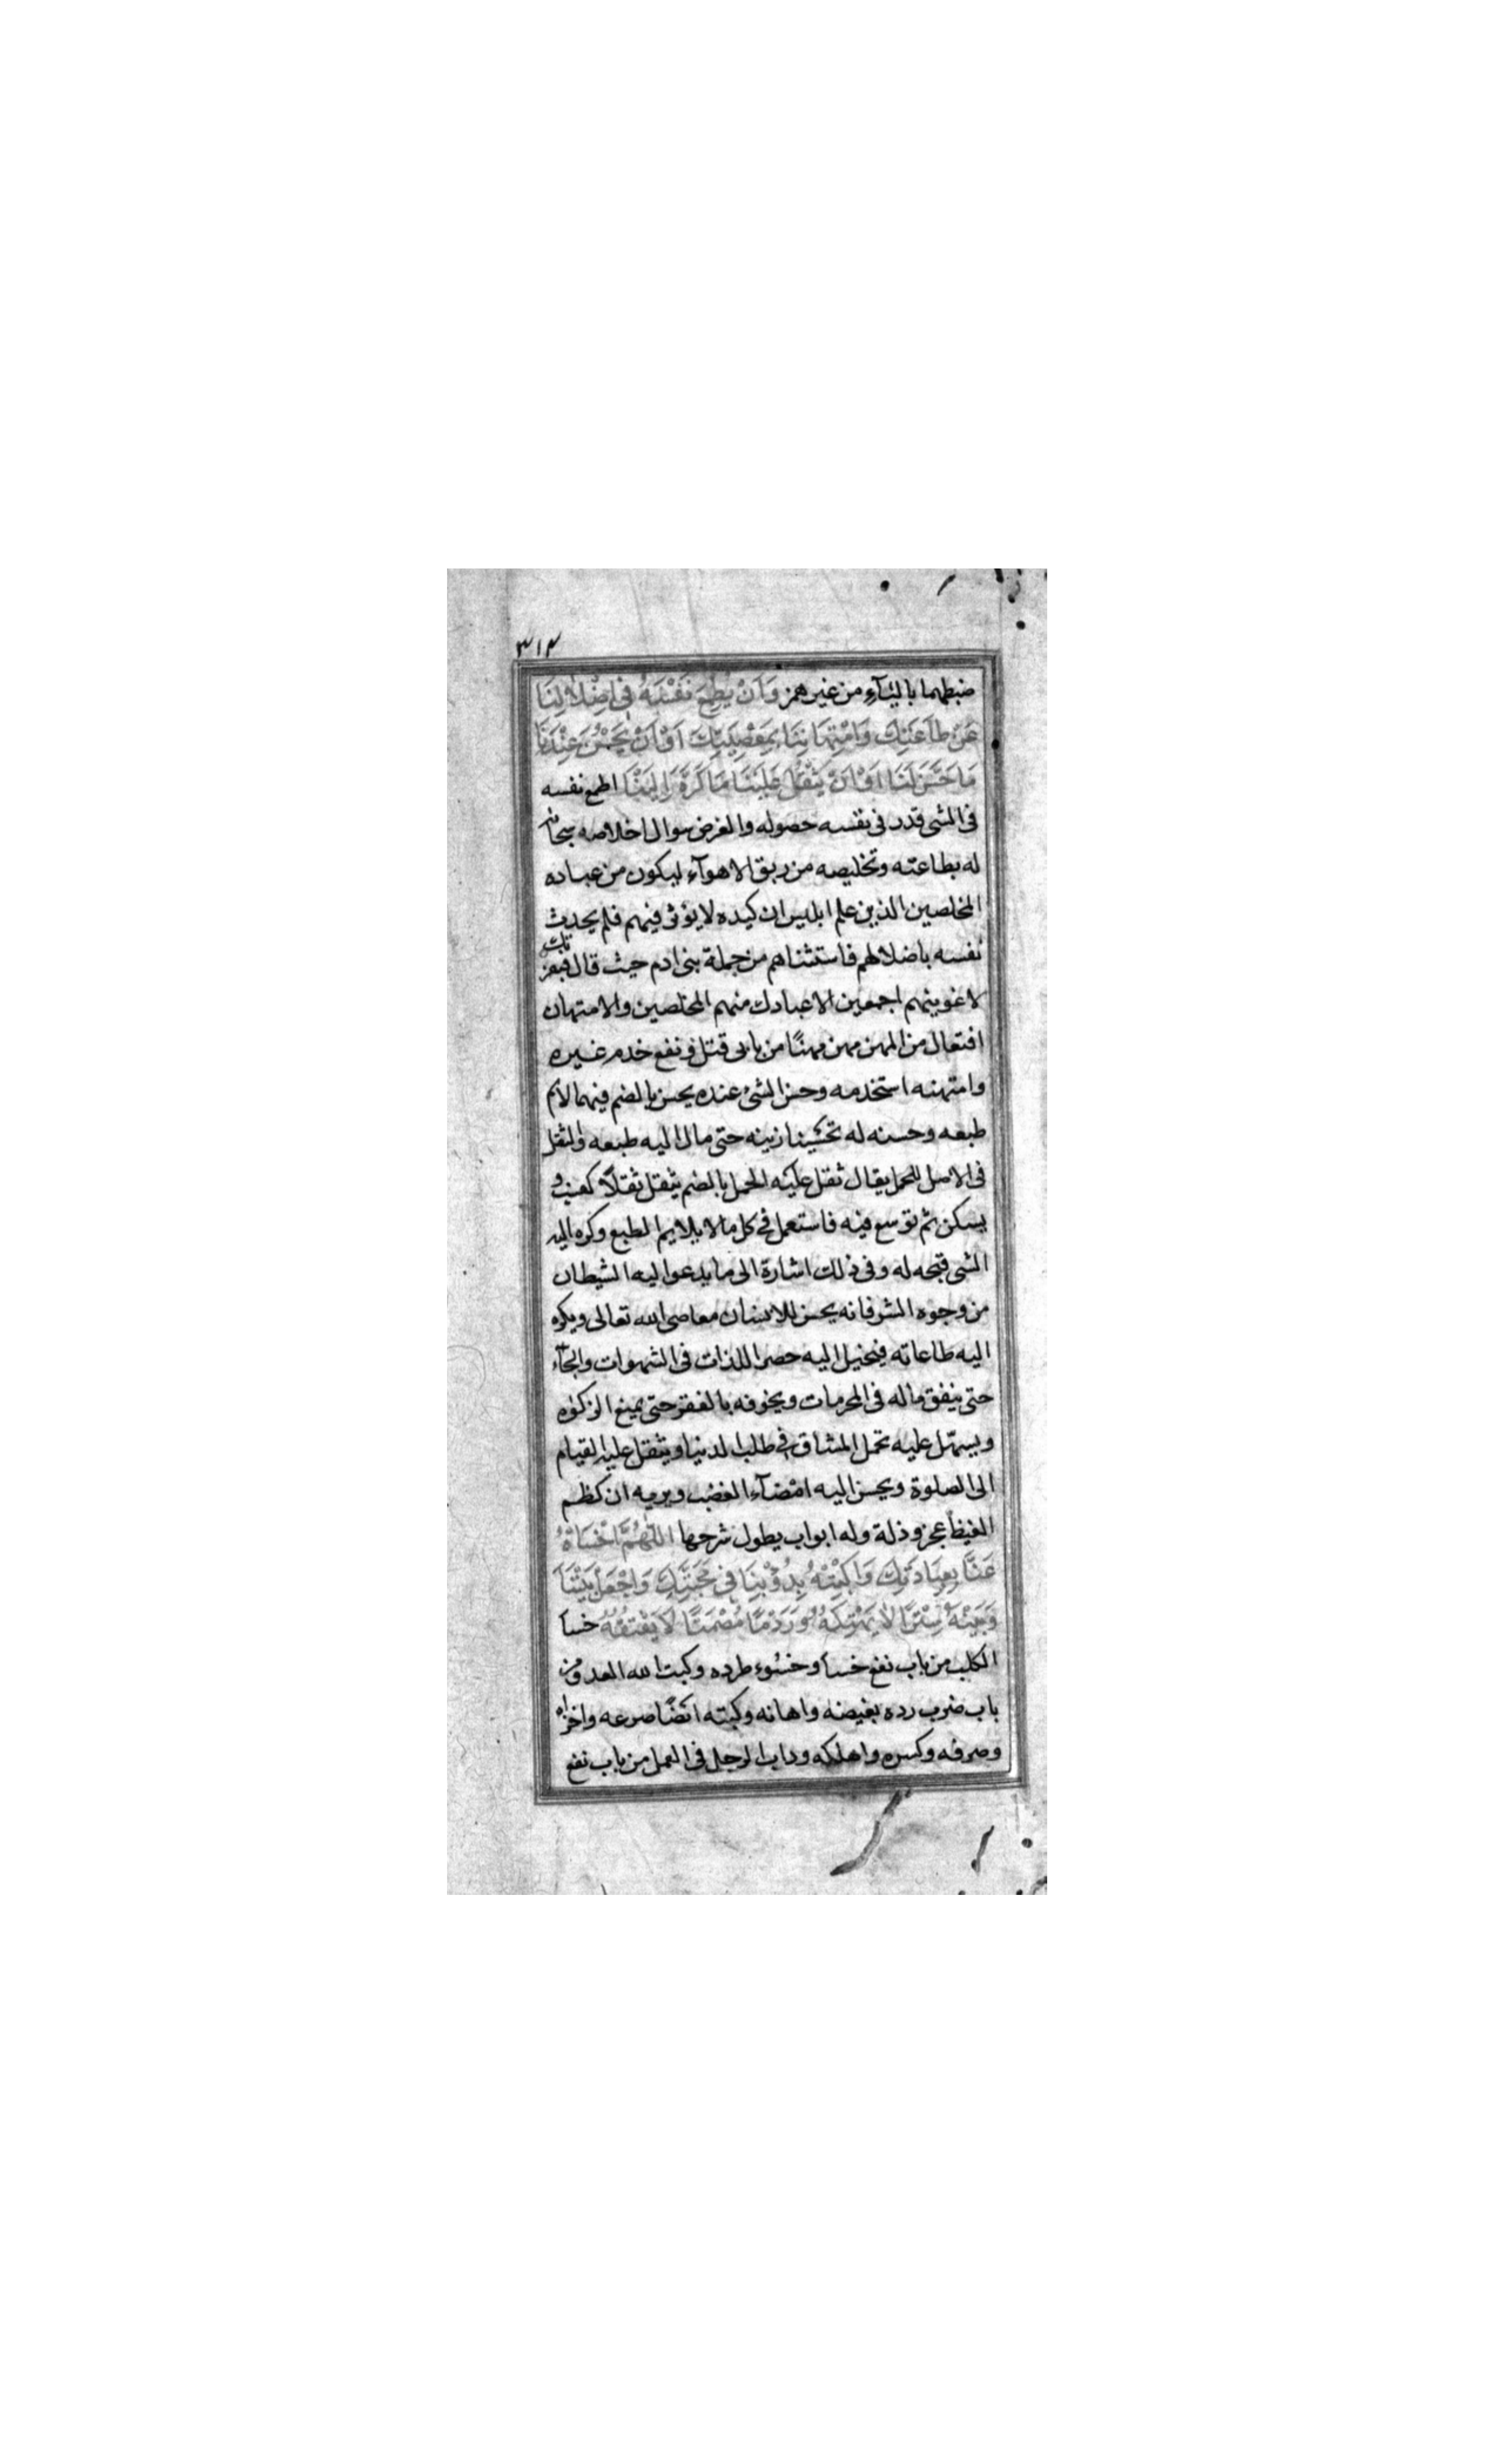 ٣١٤
ضبطهما بالياۤء من غير همز وَاَنْ يُطْمِعَ نَفْسَهُ فى اِضْلاٰلِنَا
عَنْ طاَعَتِكَ وَامْتِهَانِنَا بِمَعْصِيَتِكَ اَوْ اَنْ يَحْسُنَ عِنْدَنَا
مَا حَسَّنَ لَنَا اَوْ اَنْ يَثْقُلَ عَلَيْنَا مَا كَرَّهَ اِلَيْنَا اطمع نفسه
فى الشى قدر فى نفسه حصوله والغرض سوال اخلاصه سبحانه
له بطاعته وتخليصه من ربق الاهوآء ليكون من عباده
المخلصين الذين علم ابليس ان كيده لا يؤثر فيهم فلم يحدث
نفسه باضلالهم فاستثناهم من جملة بنى ادم حيث قال فبعزتك
لاغوينهم اجمعين الا عبادك منهم المخلصين والامتهان
افتعال من المهن مهن مهنًا من بابى قتل و نفع خدم غيره
وامتهنه استخدمه وحسن الشئ عنده يحسن بالضم فيهما لائم
طبعه وحسنه له تحسينا زينه حتى مال اليه طبعه والثقل
فى الاصل للحمل يقال ثقل عليه الحمل بالضم يثقل ثقلاً كعنب و
يسكن ثم توسع فيه فاستعمل فى كل ما لا يلايم الطبع وكره اليه
الشى قبحه له وفى ذلك اشارة الى ما يدعوا اليه الشيطان
من وجوه الشر فانه يحسن للانسان معاصى الله تعالى ويكره
اليه طاعاته فيخيل اليه حصر اللذات فى الشهوات
حتى ينفق ماله فى المحرمات ويخوفه بالفقر حتى يمنع الزكوة
ويسهّل عليه تحمل المشاق فى طلب الدنيا ويثقل عليه القيام
الى الصلوة ويحسن اليه امضاۤء الغضب ويريه ان كظم
الغيظ عجز وذلة وله ابواب يطول شرحها اللّٰهُمَّ اخْسَأْهُ
عَنَّا بِعِبَادَتِكَ وَاكْبِتْهُ بِدُؤُبِنَا فِى مَحَبَّتِكَ وَاجْعَلْ بَيْنَنَا
وَبَيْنَهُ سِتْرًا لاٰ يَهْتِكُهُ وَرَدْمًا مُصْمَتًا لاٰ يَفْتُقُهُ خسا
الكلب من باب نفع خسا وخسُوء طرده وكبت الله العدو من
باب ضرب رده بغيضه واهانه وكبته ايضًا صرعه واخزاه
وصرفه وكسره واهلكه وداب الرجل فى العمل من باب نفع